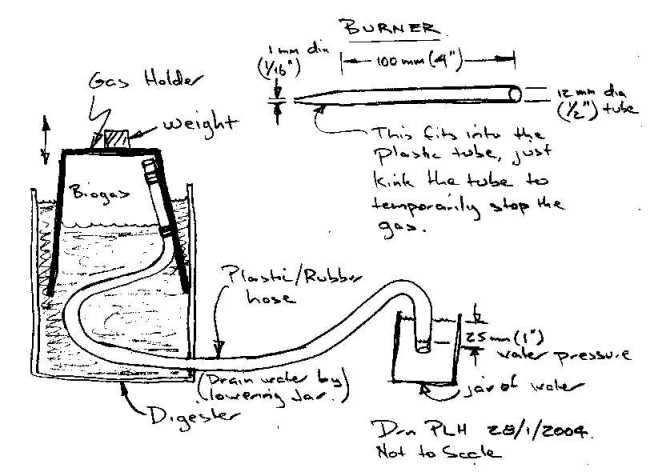 BURNER
1mm dia
(1/16")
100mm (4")
12mm dia
(1/2") tube
This fits into the
plastic tube, just
kink the tube to
temporarily stop the
gas.
Gas Holder
weight
Biogas
Plastic/Rubber
hose
(Drain water by
lowering jar.)
Digester
25mm (1")
water pressure
jar of water
Drn PLH 28/1/2004.
Not to Scale